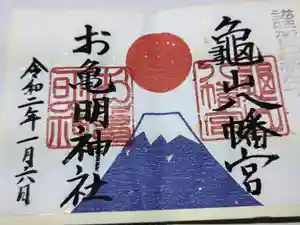 謹賀
龜山八幡宮
お亀明神社
令和二年一月六日